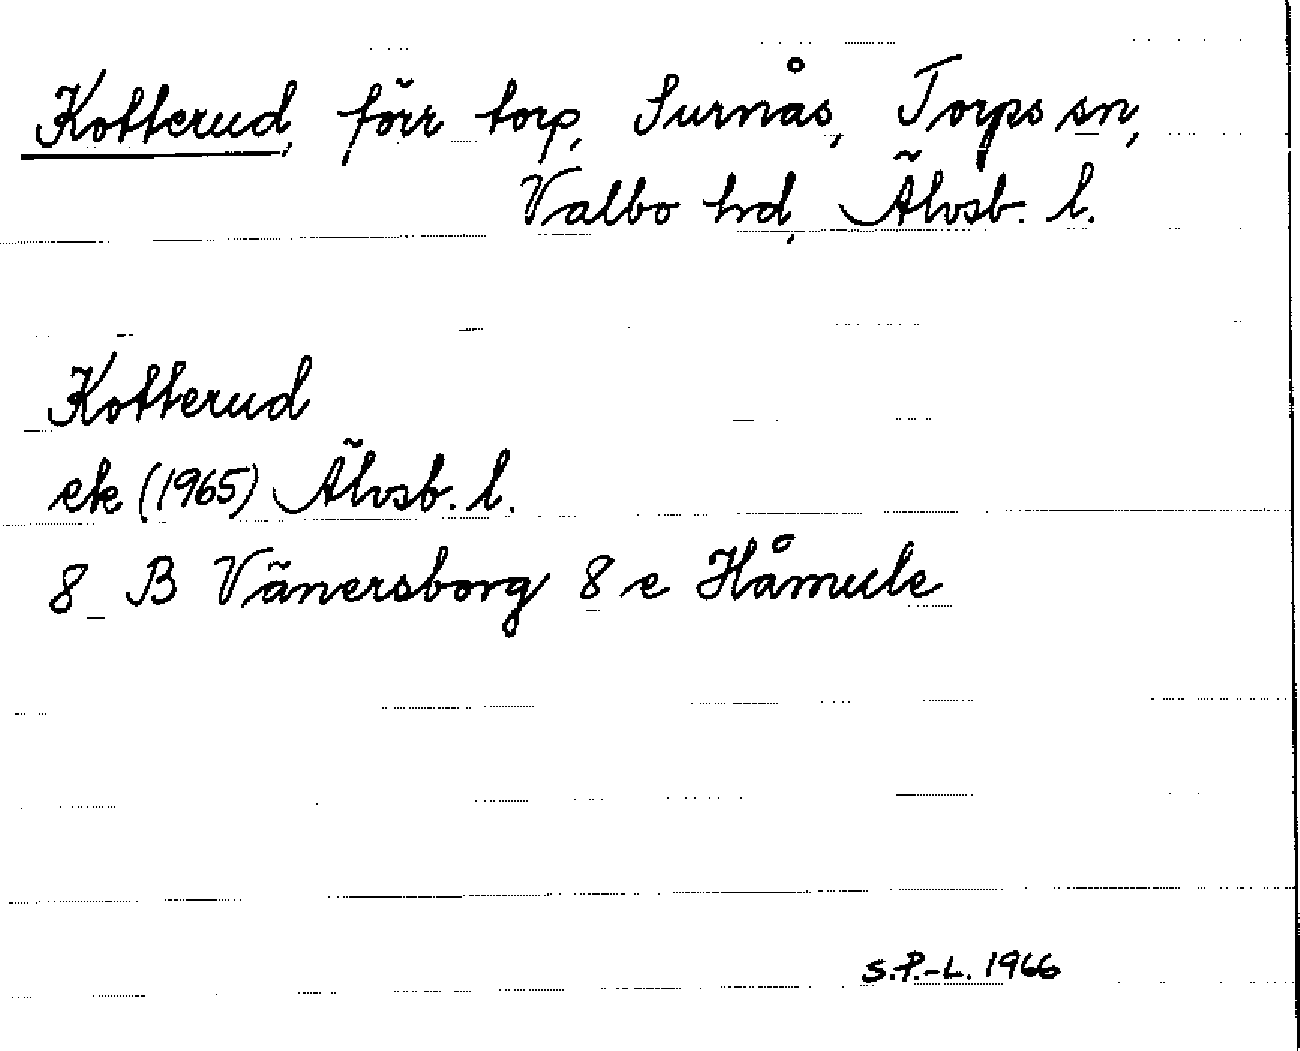 Kotterud, förr torp, Surnås, Torps sn,
Valbo hd, Älvsb. l.
Kotterud
ek (1965) Älvsb. l.
8 B Vänersborg 8 e Håmule
S.P.-L. 1966